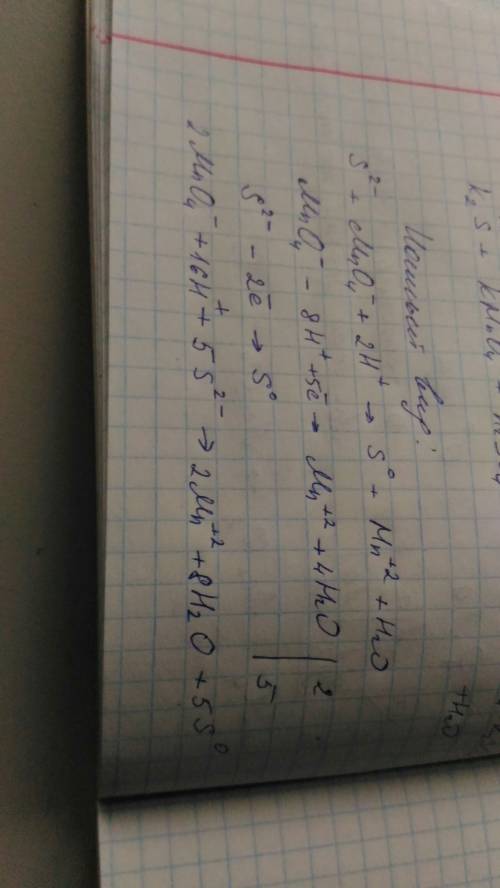 K₂S + KMnO₄ +
+ H₂O
Ионный вир:
S²⁻ + MnO₄⁻ + 2H⁺ → S⁰ + Mn⁺² + H₂O
MnO₄⁻ - 8H⁺ + 5ē → Mn⁺² + 4H₂O | 2
S²⁻ - 2ē → S⁰ | 5
2MnO₄⁻ + 16H⁺ + 5S²⁻ → 2Mn⁺² + 8H₂O + 5S⁰